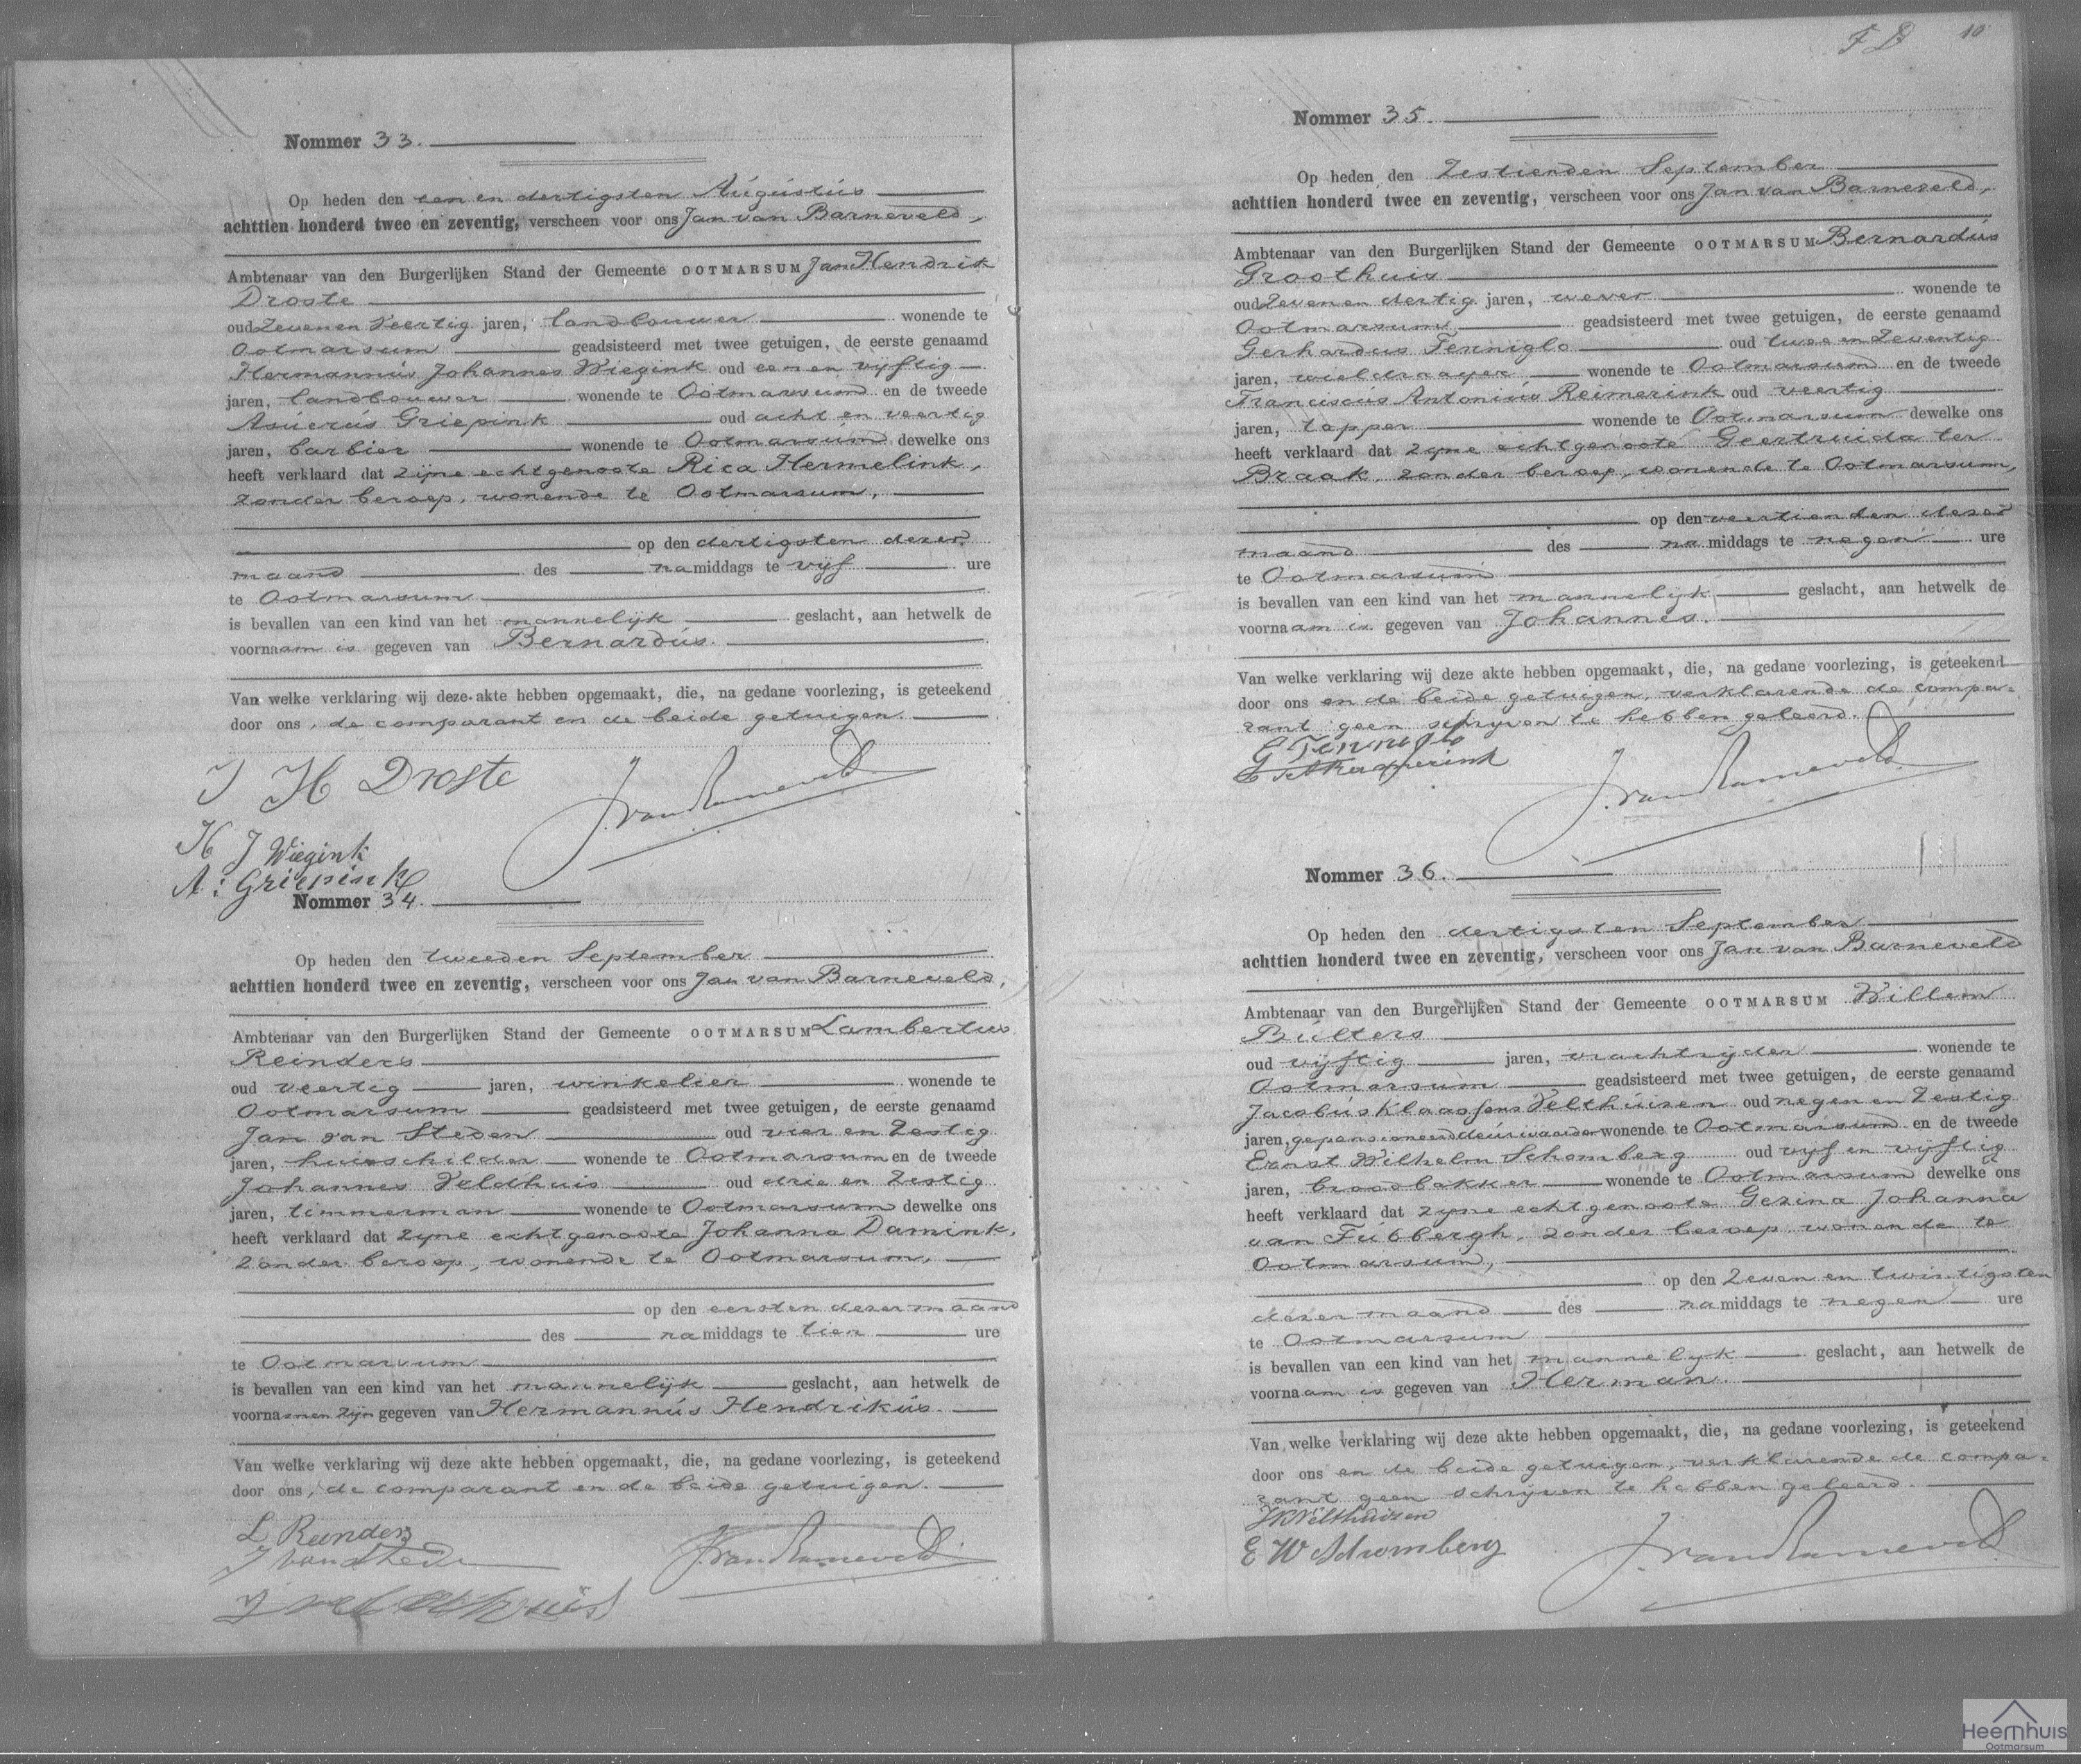 Nommer 33.
Op heden den een en dertigsten Augustus
achttien honderd twee en zeventig, verscheen voor ons Jan van Barneveld,
Ambtenaar van den Burgerlijken Stand der Gemeente OOTMARSUM Jan Hendrik
Droste
oud Zeven en Veertig jaren, landbouwer wonende te
Ootmarsum geadsisteerd met twee getuigen, de eerste genaamd
Hermannus Johannes Wiegink oud een en vijftig
jaren, landbouwer wonende te Ootmarsum en de tweede
Asuerus Griepink oud acht en veertig
jaren, barbier wonende te Ootmarsum dewelke ons
heeft verklaard dat zijne echtgenoote Rica Hermelink,
zonder beroep, wonende te Ootmarsum,
op den dertigsten dezer
maand des namiddags te vijf ure
te Ootmarsum
is bevallen van een kind van het mannelijk geslacht, aan hetwelk de
voornaam is gegeven van Bernardus.
Van welke verklaring wij deze akte hebben opgemaakt, die, na gedane voorlezing, is geteekend
door ons, de comparant en de beide getuigen.
J H Droste
J. van Barneveld
H J Wiegink
A: Griepink
Nommer 34.
Op heden den tweeden September
achttien honderd twee en zeventig, verscheen voor ons Jan van Barneveld,
Ambtenaar van den Burgerlijken Stand der Gemeente OOTMARSUM Lambertus
Reinders
oud veertig jaren, winkelier wonende te
Ootmarsum geadsisteerd met twee getuigen, de eerste genaamd
Jan van Steden oud vier en Zestig
jaren, huisschilder wonende te Ootmarsum en de tweede
Johannes Veldhuis oud drie en Zestig
jaren, timmerman wonende te Ootmarsum dewelke ons
heeft verklaard dat zyne echtgenoote Johanna Damink,
zonder beroep, wonende te Ootmarsum,
op den eersten dezer maand
des namiddags te tien ure
te Ootmarsum
is bevallen van een kind van het mannelijk geslacht, aan hetwelk de
voornamen zijn gegeven van Hermannus Hendrikus.
Van welke verklaring wij deze akte hebben opgemaakt, die, na gedane voorlezing, is geteekend
door ons, de comparant en de beide getuigen.
L Reinders
J van Stede
J. van Barneveld
J veldhuis
F D 10
Nommer 35.
Op heden den Zestienden September
achttien honderd twee en zeventig, verscheen voor ons Jan van Barneveld,
Ambtenaar van den Burgerlijken Stand der Gemeente OOTMARSUM Bernardus
Groothuis
oud Zeven en dertig jaren, wever wonende te
Ootmarsum, geadsisteerd met twee getuigen, de eerste genaamd
Gerhardus Tenniglo oud twee en Zeventig
jaren, wieldraayer wonende te Ootmarsum en de tweede
Franciscus Antonius Reimerink oud veertig
jaren, tapper wonende te Ootmarsum dewelke ons
heeft verklaard dat zyne echtgenoote Geertruida ter
Braak, zonder beroep, wonende te Ootmarsum,
op den veertienden dezer
maand des namiddags te negen ure
te Ootmarsum
is bevallen van een kind van het mannelijk geslacht, aan hetwelk de
voornaam is gegeven van Johannes.
Van welke verklaring wij deze akte hebben opgemaakt, die, na gedane voorlezing, is geteekend
door ons en de beide getuigen, verklarende de compa-
rant geen schrijven te hebben geleerd.
G Tenniglo
J. van Barneveld
Nommer 36.
Op heden den dertigsten September
achttien honderd twee en zeventig, verscheen voor ons Jan van Barneveld
Ambtenaar van den Burgerlijken Stand der Gemeente OOTMARSUM Willem
Bulters
oud vijftig jaren, vrachtrijder wonende te
Ootmarsum geadsisteerd met twee getuigen, de eerste genaamd
Jacobus Klaassens Velthuisen oud negen en Zestig
jaren, gepensioneerd deurwaarder wonende te Ootmarsum en de tweede
Ernst Wilhelm Schomberg oud vijf en vijftig
jaren, broodbakker wonende te Ootmarsum dewelke ons
heeft verklaard dat zyne echtgenoote Gezina Johanna
van Fubbergh, zonder beroep wonende te
Ootmarsum,
op den Zeven en twintigsten
dezer maand des namiddags te negen ure
te Ootmarsum
is bevallen van een kind van het mannelyk geslacht, aan hetwelk de
voornaam is gegeven van Herman.
Van welke verklaring wij deze akte hebben opgemaakt, die, na gedane voorlezing, is geteekend
door ons en de beide getuigen, verklarende de compa-
rant geen schrijven te hebben geleerd.
JKVelthuisen
E W Schomberg
J. van Barneveld
Heemhuis
Ootmarsum